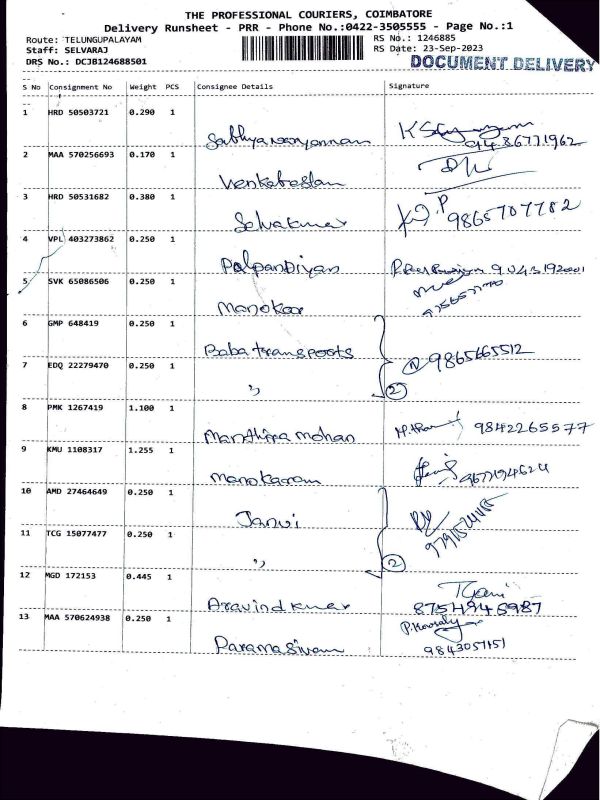 THE PROFESSIONAL COURIERS, COIMBATORE
Delivery Runsheet - PRR - Phone No.:0422-3505555 - Page No.:1
Route: TELUNGUPALAYAM RS No.: 1246885
Staff: SELVARAJ RS Date: 23-Sep-2023
DRS No.: DCJB124688501 DOCUMENT DELIVERY
S No Consignment No Weight PCS Consignee Details Signature
1 HRD 50503721 0.290 1
2 MAA 570256693 0.170 1
3 HRD 50531682 0.380 1 Selvakumar 9865707782
4 VPL 403273862 0.250 1 Palpandiyan
5 SVK 65086506 0.250 1 Manokar
6 GMP 648419 0.250 1 Baba transpoots
7 EDQ 22279470 0.250 1 " 2 9865665512
8 PMK 1267419 1.100 1 Manthira mohan 9842265577
9 KMU 1108317 1.255 1 Manokaram
10 AMD 27464649 0.250 1 Janvi
11 TCG 15077477 0.250 1 " 2
12 MGD 172153 0.445 1 Aravindkumar 8754946987
13 MAA 570624938 0.250 1 Paramasivam 9843057151